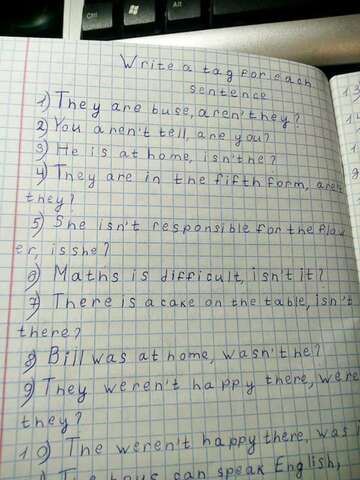 Win
Alt
Ctrl
Write a tag for each
sentence
1) They are buse, aren't they?
2) You aren't tell, are you?
3) He is at home, isn't he?
4) They are in the fifth form, aren
they?
5) She isn't responsible for the flow
er, is she?
6) Maths is difficult, isn't it?
7) There is a cake on the table, isn't
there?
8) Bill was at home, wasn't he?
9) They weren't happy there, were
they?
10) The weren't happy there, was
can speak English,